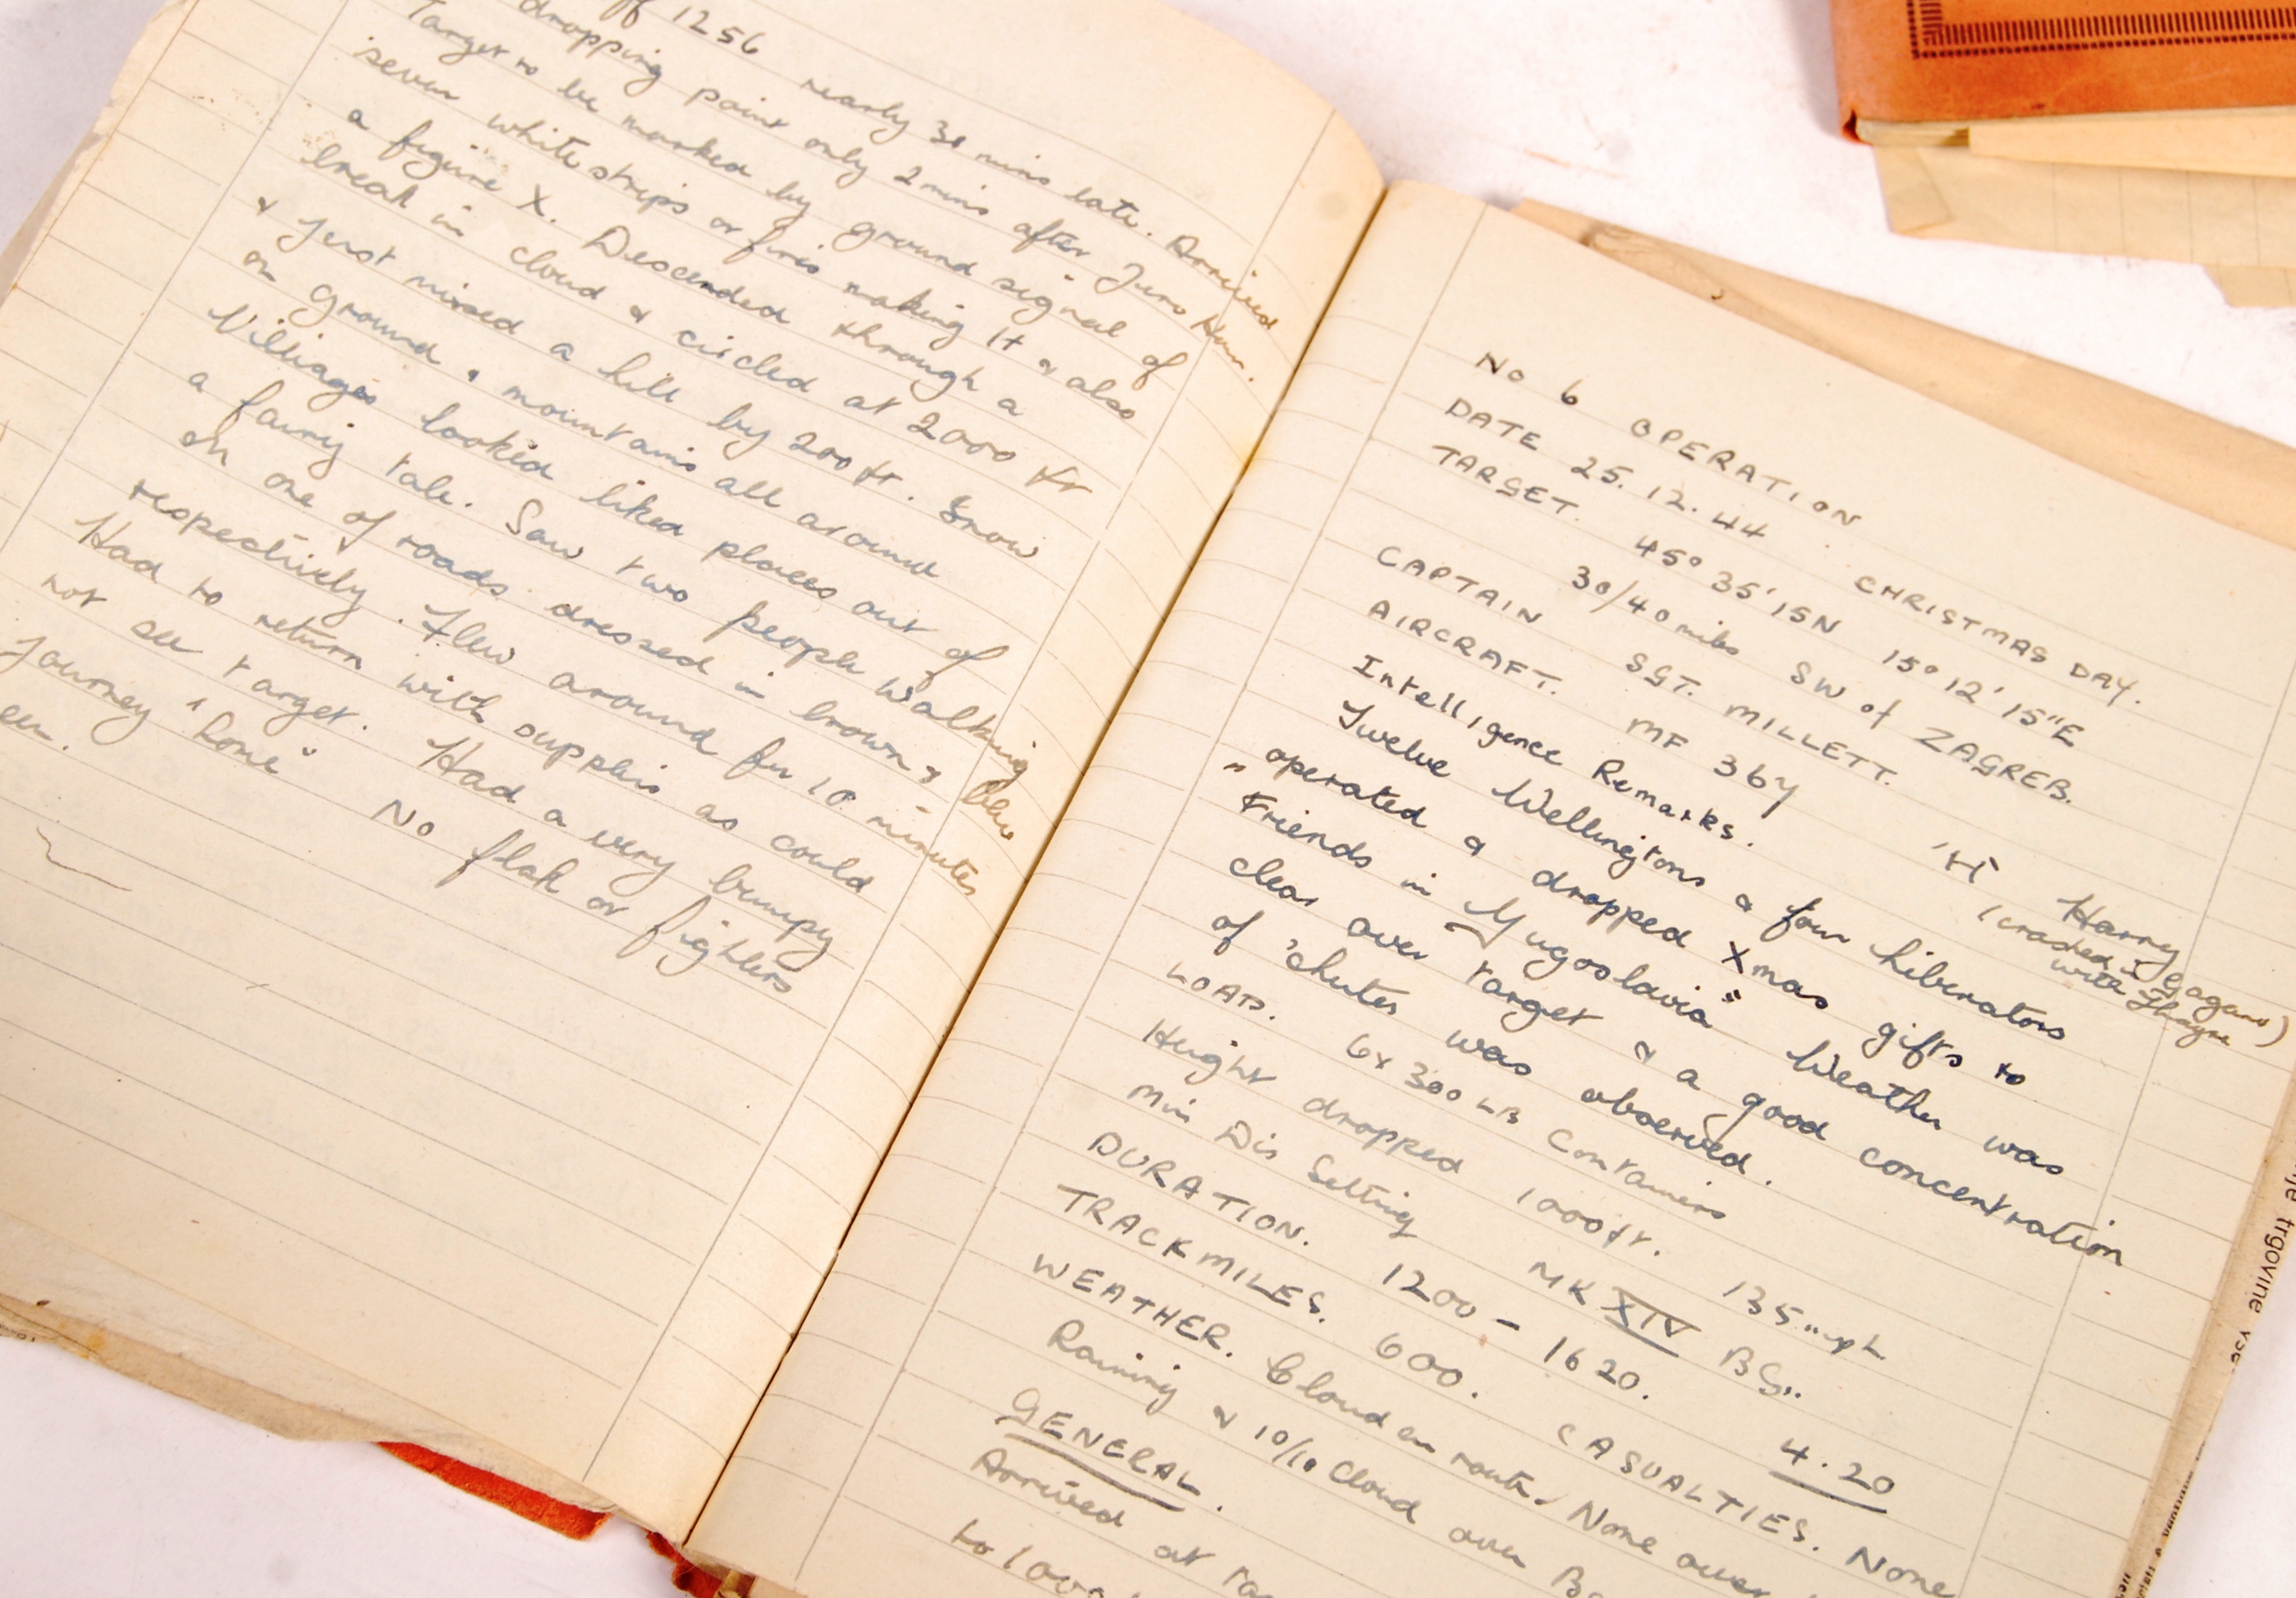 off 1256 nearly 30 mins late. Arrived
dropping point only 2 mins after Juno Hour.
Target to be marked by ground signal of
seven white strips or fires making it & also
a figure X. Descended through a
break in cloud & circled at 2000 ft
& just missed a hill by 200 ft. Snow
on ground & mountains all around
Villiages looked liked places out of
a fairy tale. Saw two people walking
on one of roads dressed in brown & blue
respectively. Flew around for 10 minutes
Had to return with supplies as could
not see target. Had a very bumpy
journey "home" No flak or fighters
seen.
No 6 OPERATION
DATE 25.12.44 CHRISTMAS DAY.
TARGET. 45° 35' 15N 15° 12' 15"E
30/40 miles SW of ZAGREB.
CAPTAIN SGT. MILLETT.
AIRCRAFT. MF 367 'H' Harry
(crashed Gagano)
with Thayne
Intelligence Remarks.
Twelve Wellingtons & four Liberators
"operated & dropped Xmas gifts to
Friends in Yugoslavia" Weather was
clear over target & a good concentration
of 'chutes was observed.
LOAD. 6x 300 LB Containers
Height dropped 1000 ft. 135 mph
Min Dis Setting MK XIV BS.
DURATION. 1200 - 1620. 4.20
TRACK MILES. 600. CASUALTIES. None
WEATHER. Cloud en route. None over
Raining & 10/10 Cloud over
GENERAL.
Arrived at
to
trgovine